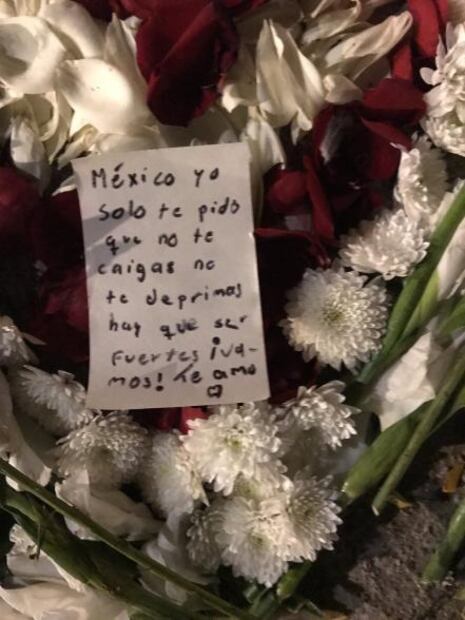 México yo
solo te pido
que no te
caigas no
te deprimas
hay que ser
fuertes ¡va-
mos! te amo